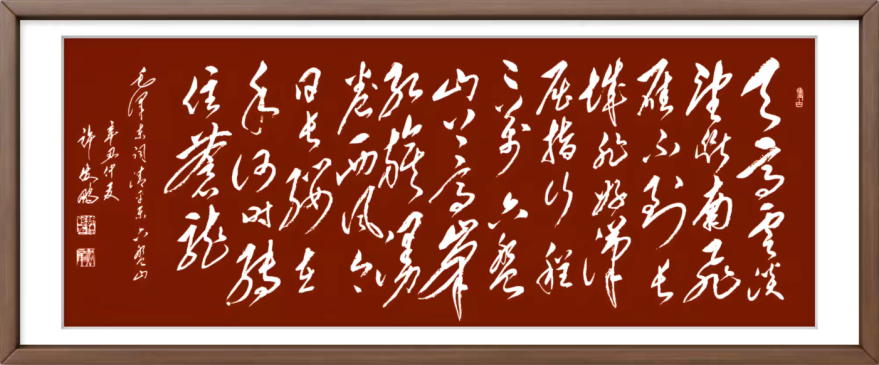 天高雲淡
望断南飛
雁不到长
城非好漢
屈指行程
二萬六盘
山上高峰
红旗漫
卷西风今
日长缨在
手何时缚
住蒼龍
毛泽东词清平乐六盘山
辛丑仲夏
许 鹏